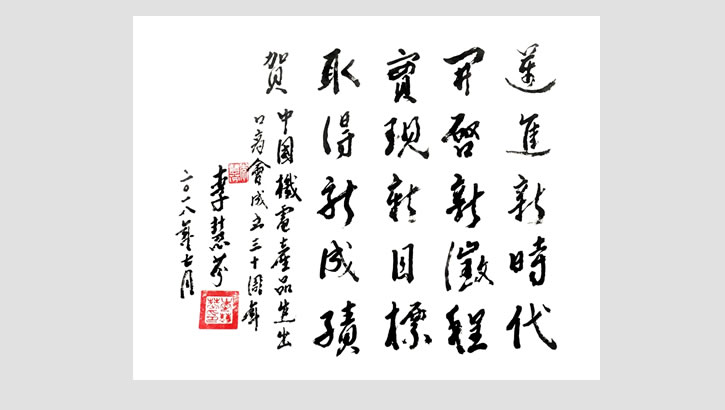 邁進新時代
開啓新徵程
實現新目標
取得新成績
賀
中國機電產品進出
口商會成立三十周年
李慧芬
二〇一八年七月